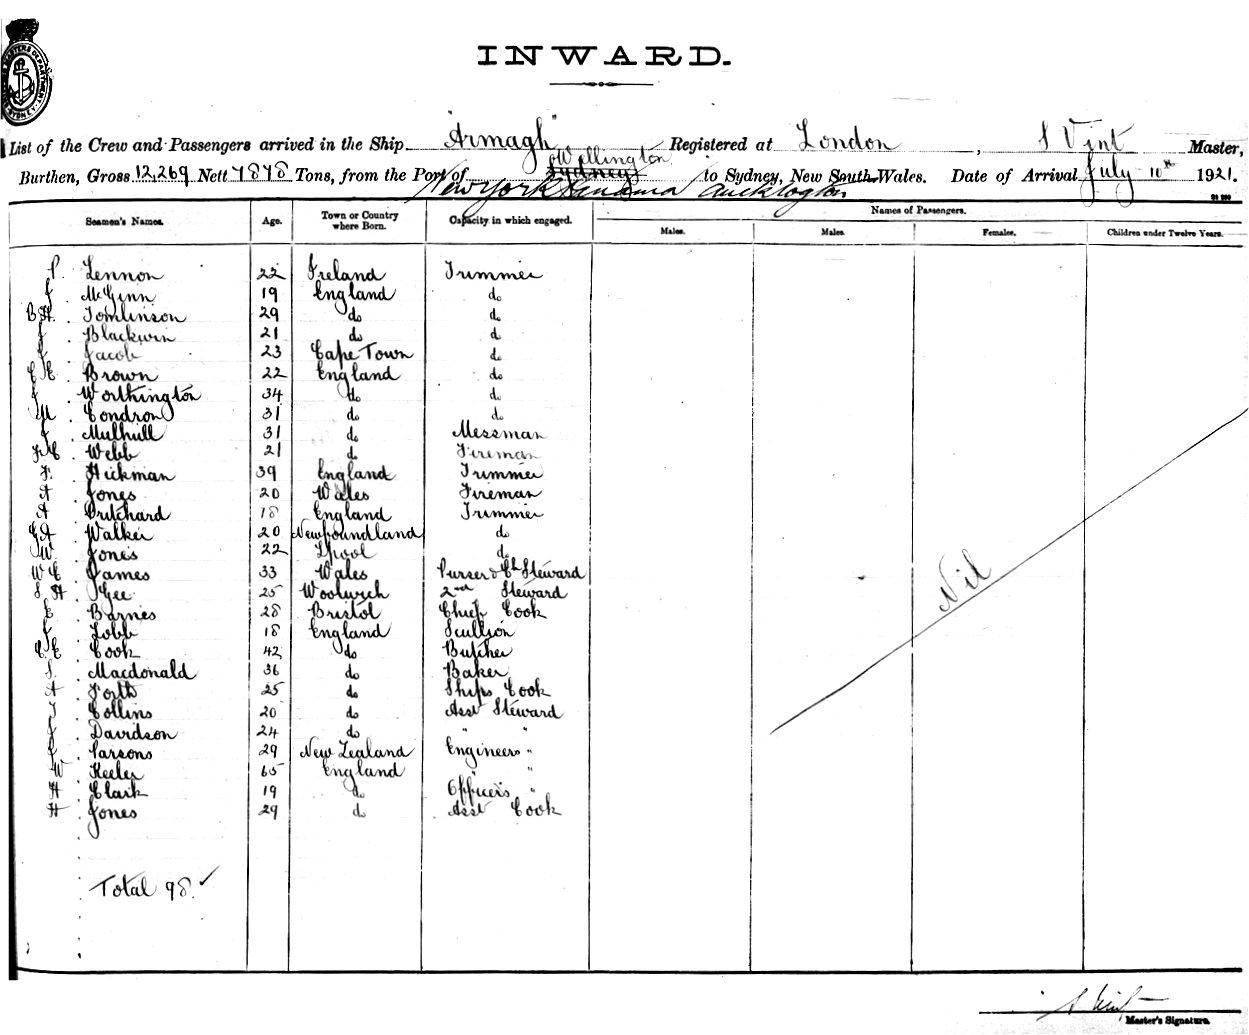 INWARD.
List of the Crew and Passengers arrived in the Ship "Armagh" Registered at London, S Vint Master,
Wellington
Burthen, Gross 12,269 Nett 7878 Tons, from the Port of Sydney to Sydney, New South Wales. Date of Arrival July 10th 1921.
New York Panama Auckland
Seamen's Names. Age. Town or Country where Born. Capacity in which engaged. Names of Passengers.
Males. Males. Females. Children under Twelve Years.
P. Lennon 22 Ireland Trimmer
J. McGinn 19 England do
B H. Tomlinson 29 do do
J. Blackwin 21 do d
J. Jacob 23 Cape Town do
C E Brown 22 England do
J. Worthington 34 do do
M. Condron 31 do do
J. Mulhull 31 do Messman
F C Webb 21 do Fireman
F. Hickman 39 England Trimmer
A Jones 20 Wales Fireman
A Pritchard 18 England Trimmer
G A Walker 20 Newfoundland do
W. Jones 22 Lpool do
W C James 33 Wales Purser & Ch Steward
S H Gee 25 Woolwich 2nd Steward
E Barnes 28 Bristol Chief Cook
J Lobb 18 England Scullion
C E Cook 42 do Butcher
S. Macdonald 36 do Baker
A Forth 25 do Ships Cook
T Collins 20 do Asst Steward
J Davidson 24 do " "
J Parsons 29 New Zealand Engineers "
W Keeler 65 England " "
H Clark 19 do Officers "
H Jones 29 do Asst Cook
Nil
Total 98
S Vint
Master's Signature.